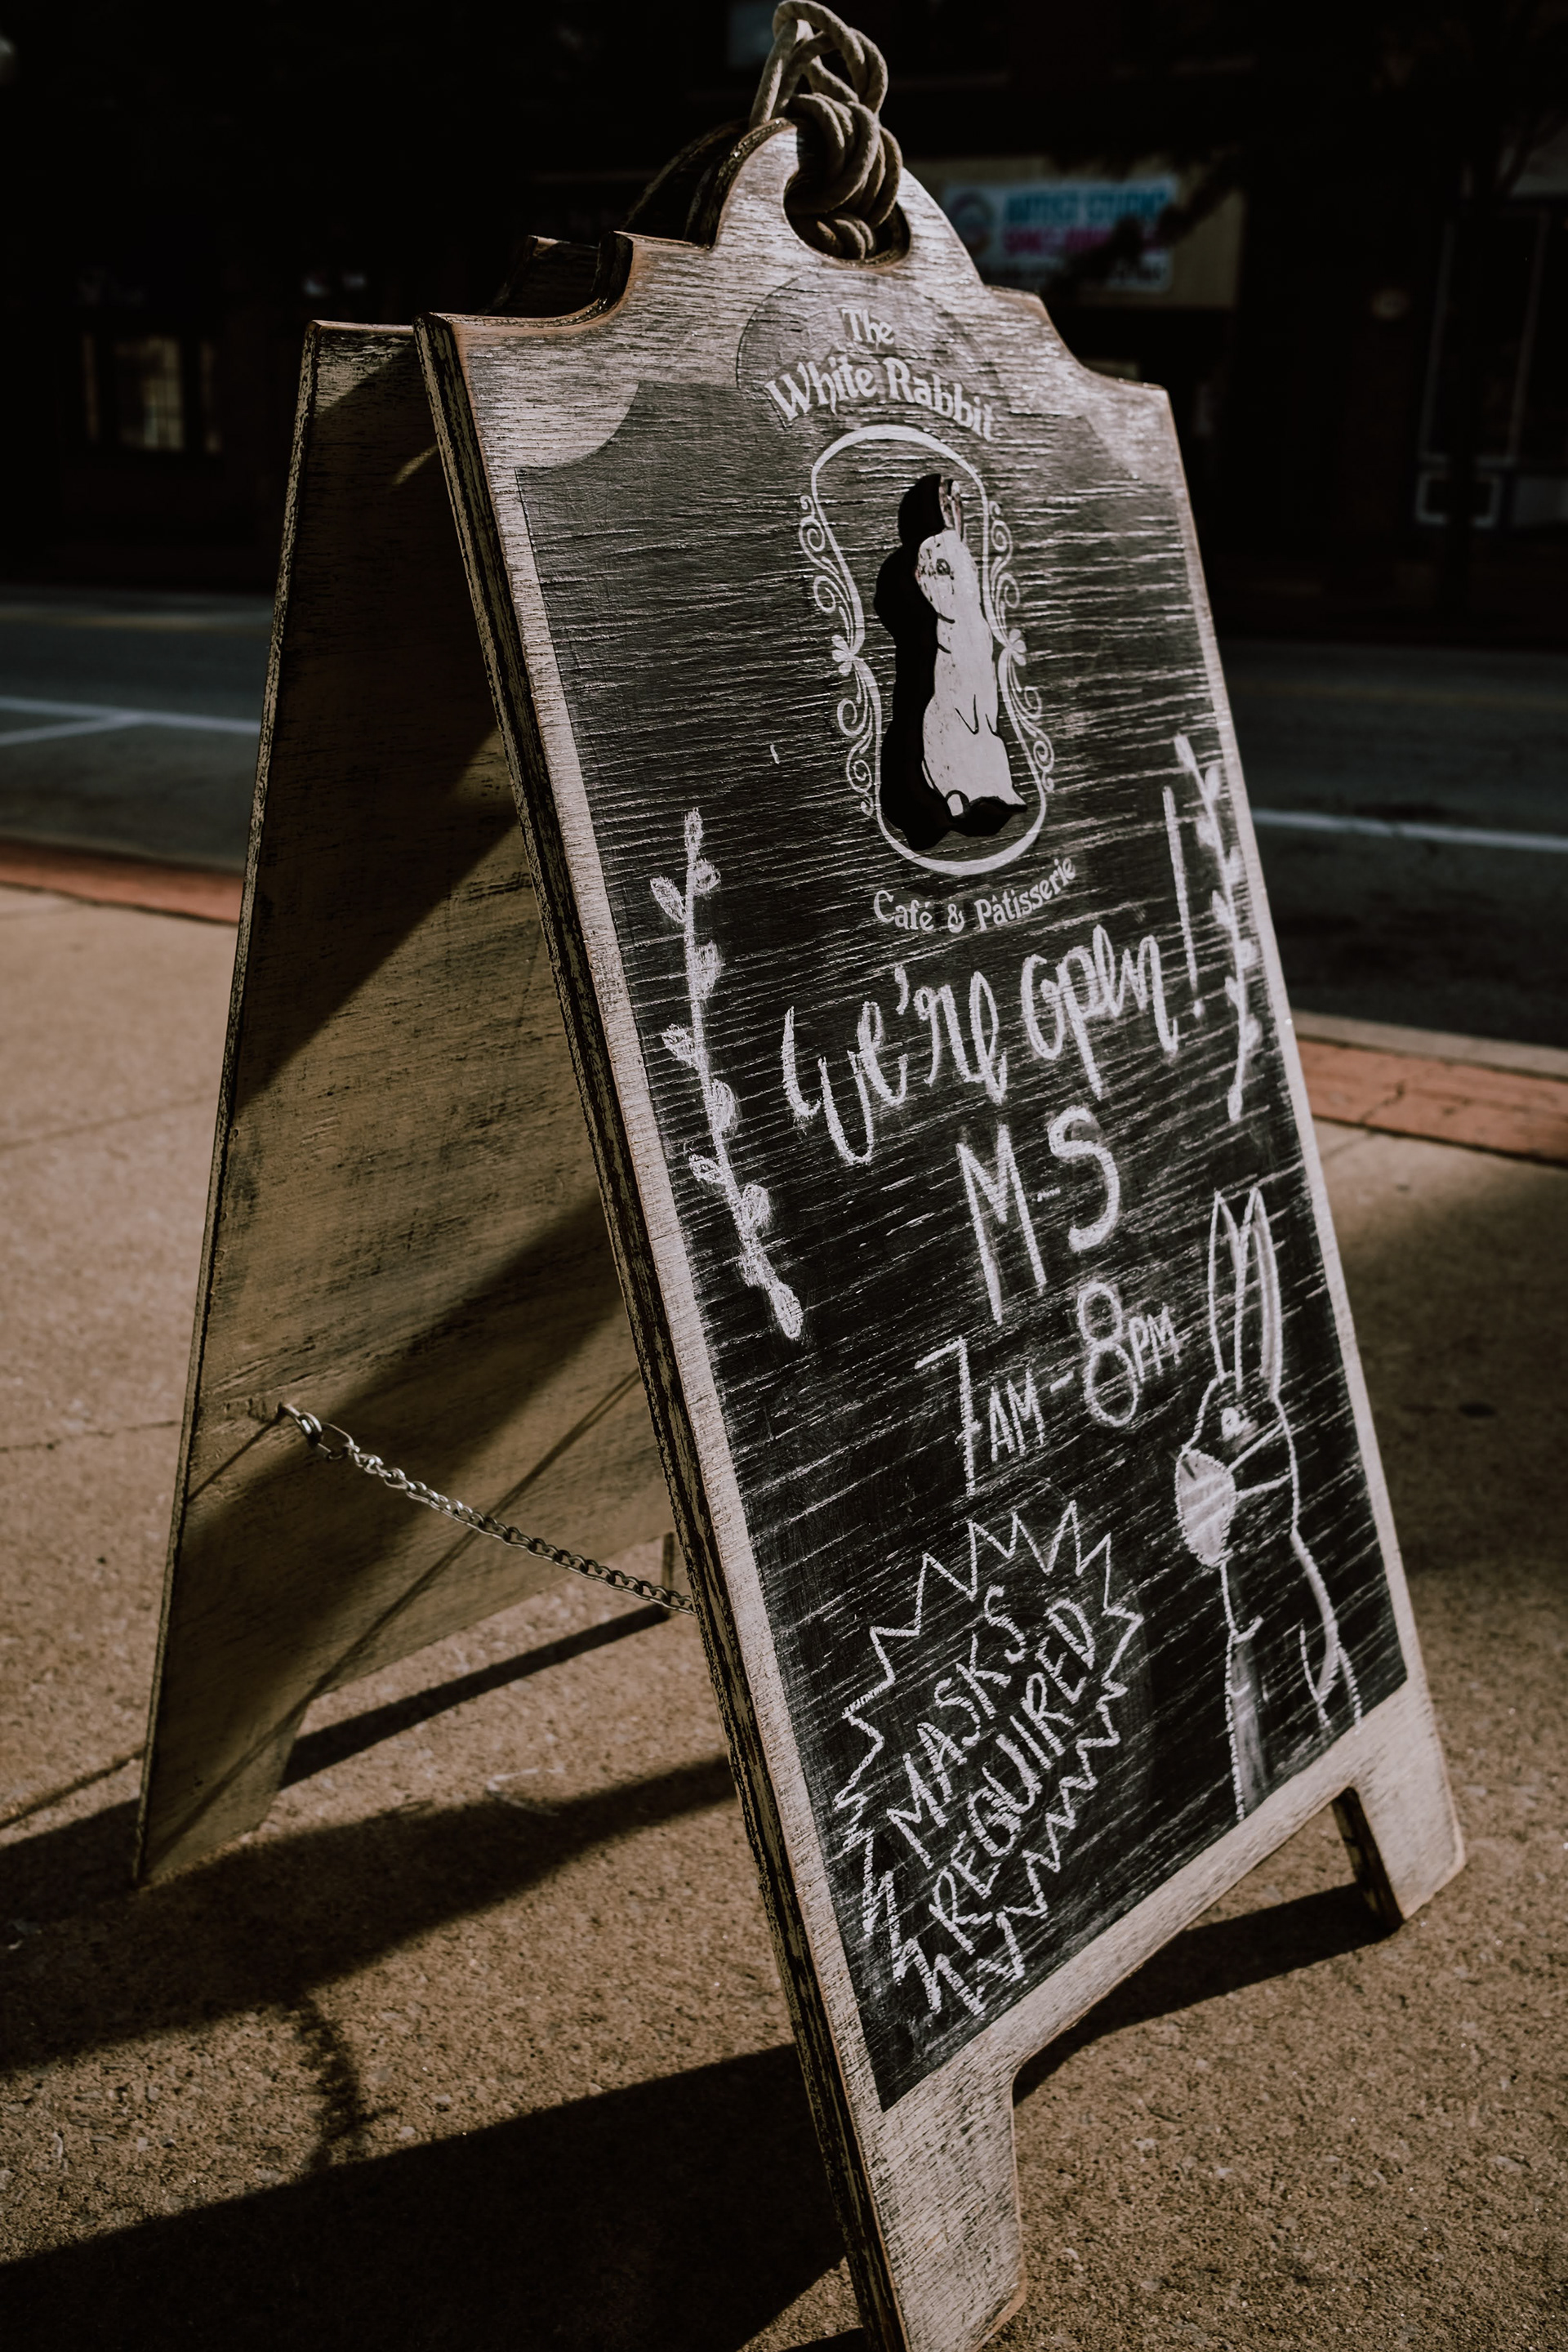 The
White Rabbit
Café & Pâtisserie
We're open!
M-S
7AM-8PM
MASKS
REQUIRED